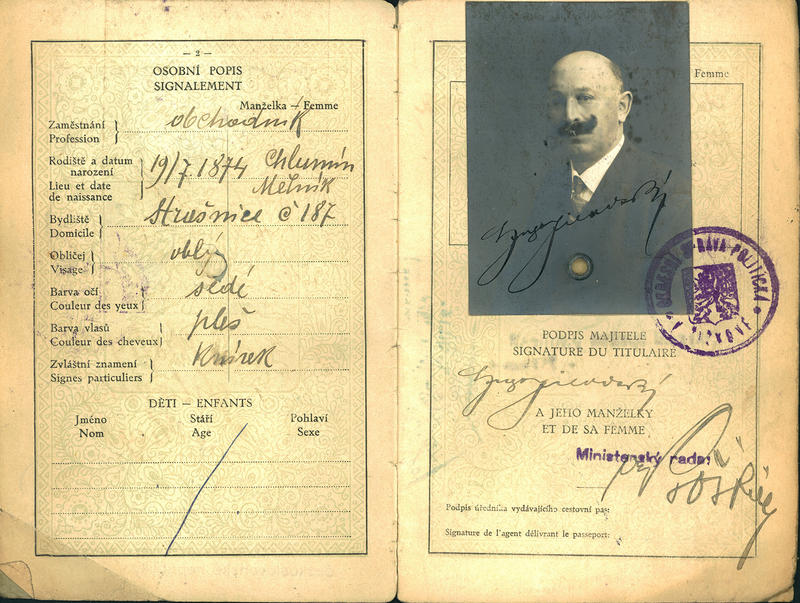 — 2 —
OSOBNÍ POPIS
SIGNALEMENT
Manželka – Femme
Zaměstnání
Profession
obchodník
Rodiště a datum narození
Lieu et date de naissance
19/7. 1874 Chlumín
Mělník
Bydliště
Domicile
Strašnice č 187
Obličej
Visage
oblý
Barva očí
Couleur des yeux
šedé
Barva vlasů
Couleur des cheveux
pleš
Zvláštní znamení
Signes particuliers
knírek
DĚTI – ENFANTS
Jméno Stáří Pohlaví
Nom Age Sexe
Femme
OKRESNÍ SPRÁVA POLITICKÁ
V ŽIŽKOVĚ
PODPIS MAJITELE
SIGNATURE DU TITULAIRE
A JEHO MANŽELKY
ET DE SA FEMME
Ministerský rada:
Podpis úředníka vydávajícího cestovní pas:
Signature de l'agent délivrant le passeport: